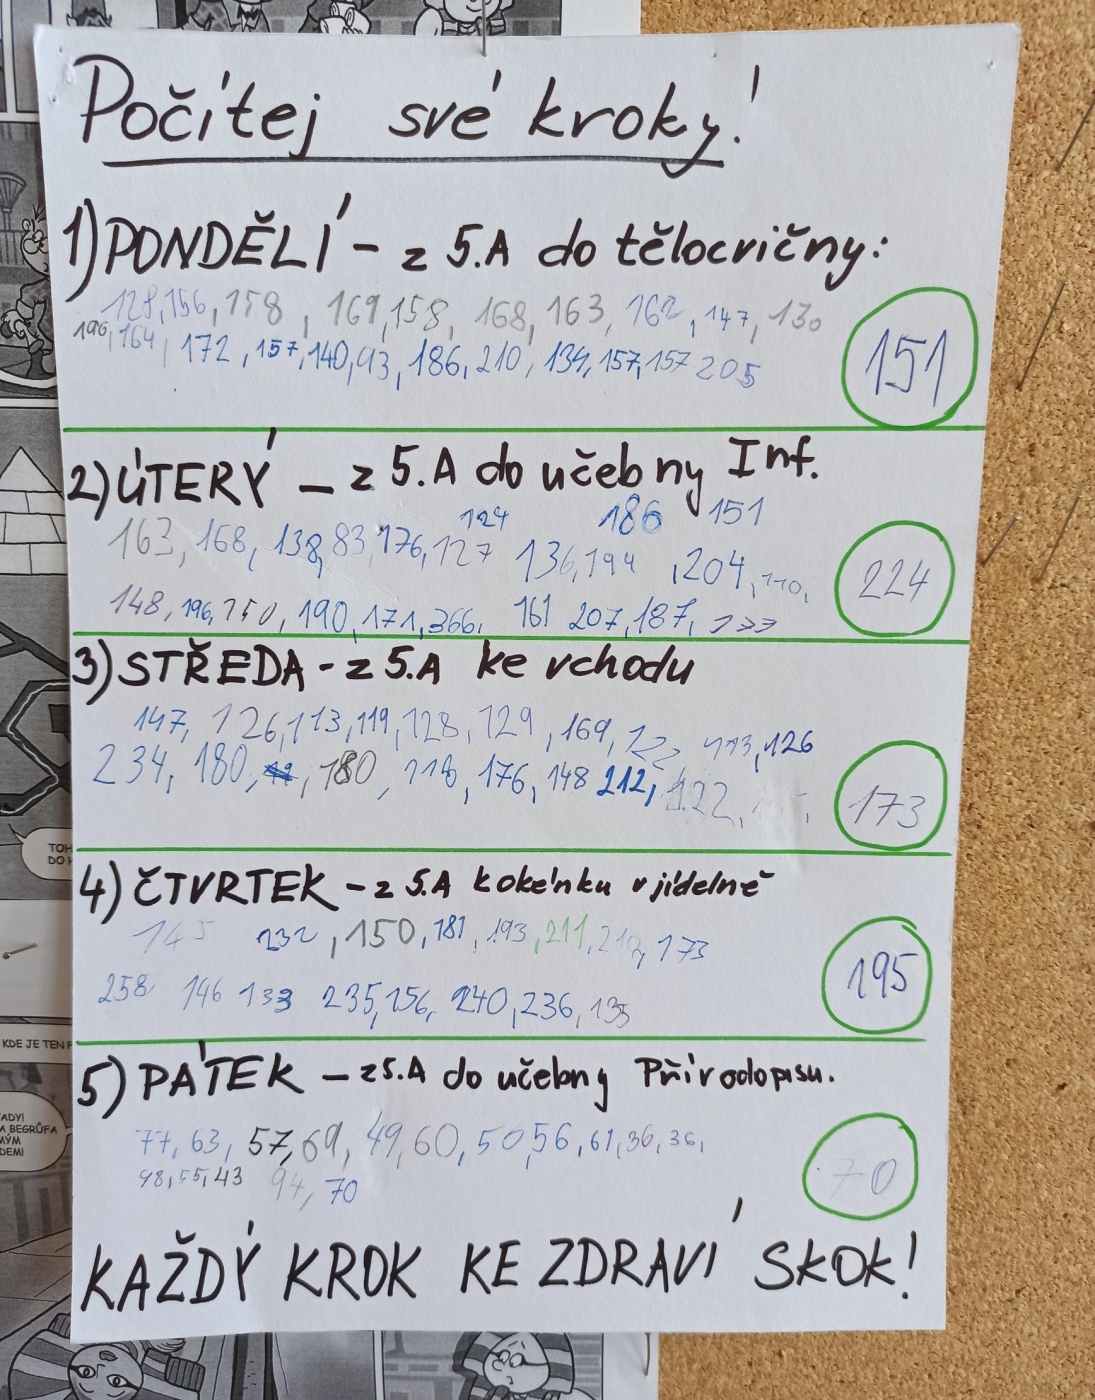 Počítej své kroky!
1) PONDĚLÍ - z 5.A do tělocvičny:
128, 156, 158, 169, 158, 168, 163, 162, 147, 130
196, 164, 172, 157, 140, 93, 186, 210, 134, 157, 157 205
151
2) ÚTERÝ - z 5.A do učebny Inf.
124 186 151
163, 168, 138, 83, 176, 127 136, 194 , 204, 110,
148, 196, 150, 190, 171, 366, 161 207, 187,
224
3) STŘEDA - z 5.A ke vchodu
147, 126, 113, 119, 128, 129, 169, 113, 126
234, 180, , 180, 118, 176, 148 212, 122,
173
4) ČTVRTEK - z 5.A k okénku v jídelně
145 232, 150, 181, 193, 211, 210, 173
258 146 133 235, 156, 240, 236, 135
195
5) PÁTEK - z 5.A do učebny Přírodopisu.
77, 63, 57, 69, 49, 60, 50 56, 61, 36, 36,
98, 55, 43 94, 70
70
KAŽDÝ KROK KE ZDRAVÍ SKOK!
TOH
DO H
KDE JE TEN P
ADY!
A BEGRŮFA
MÝM
DEM!